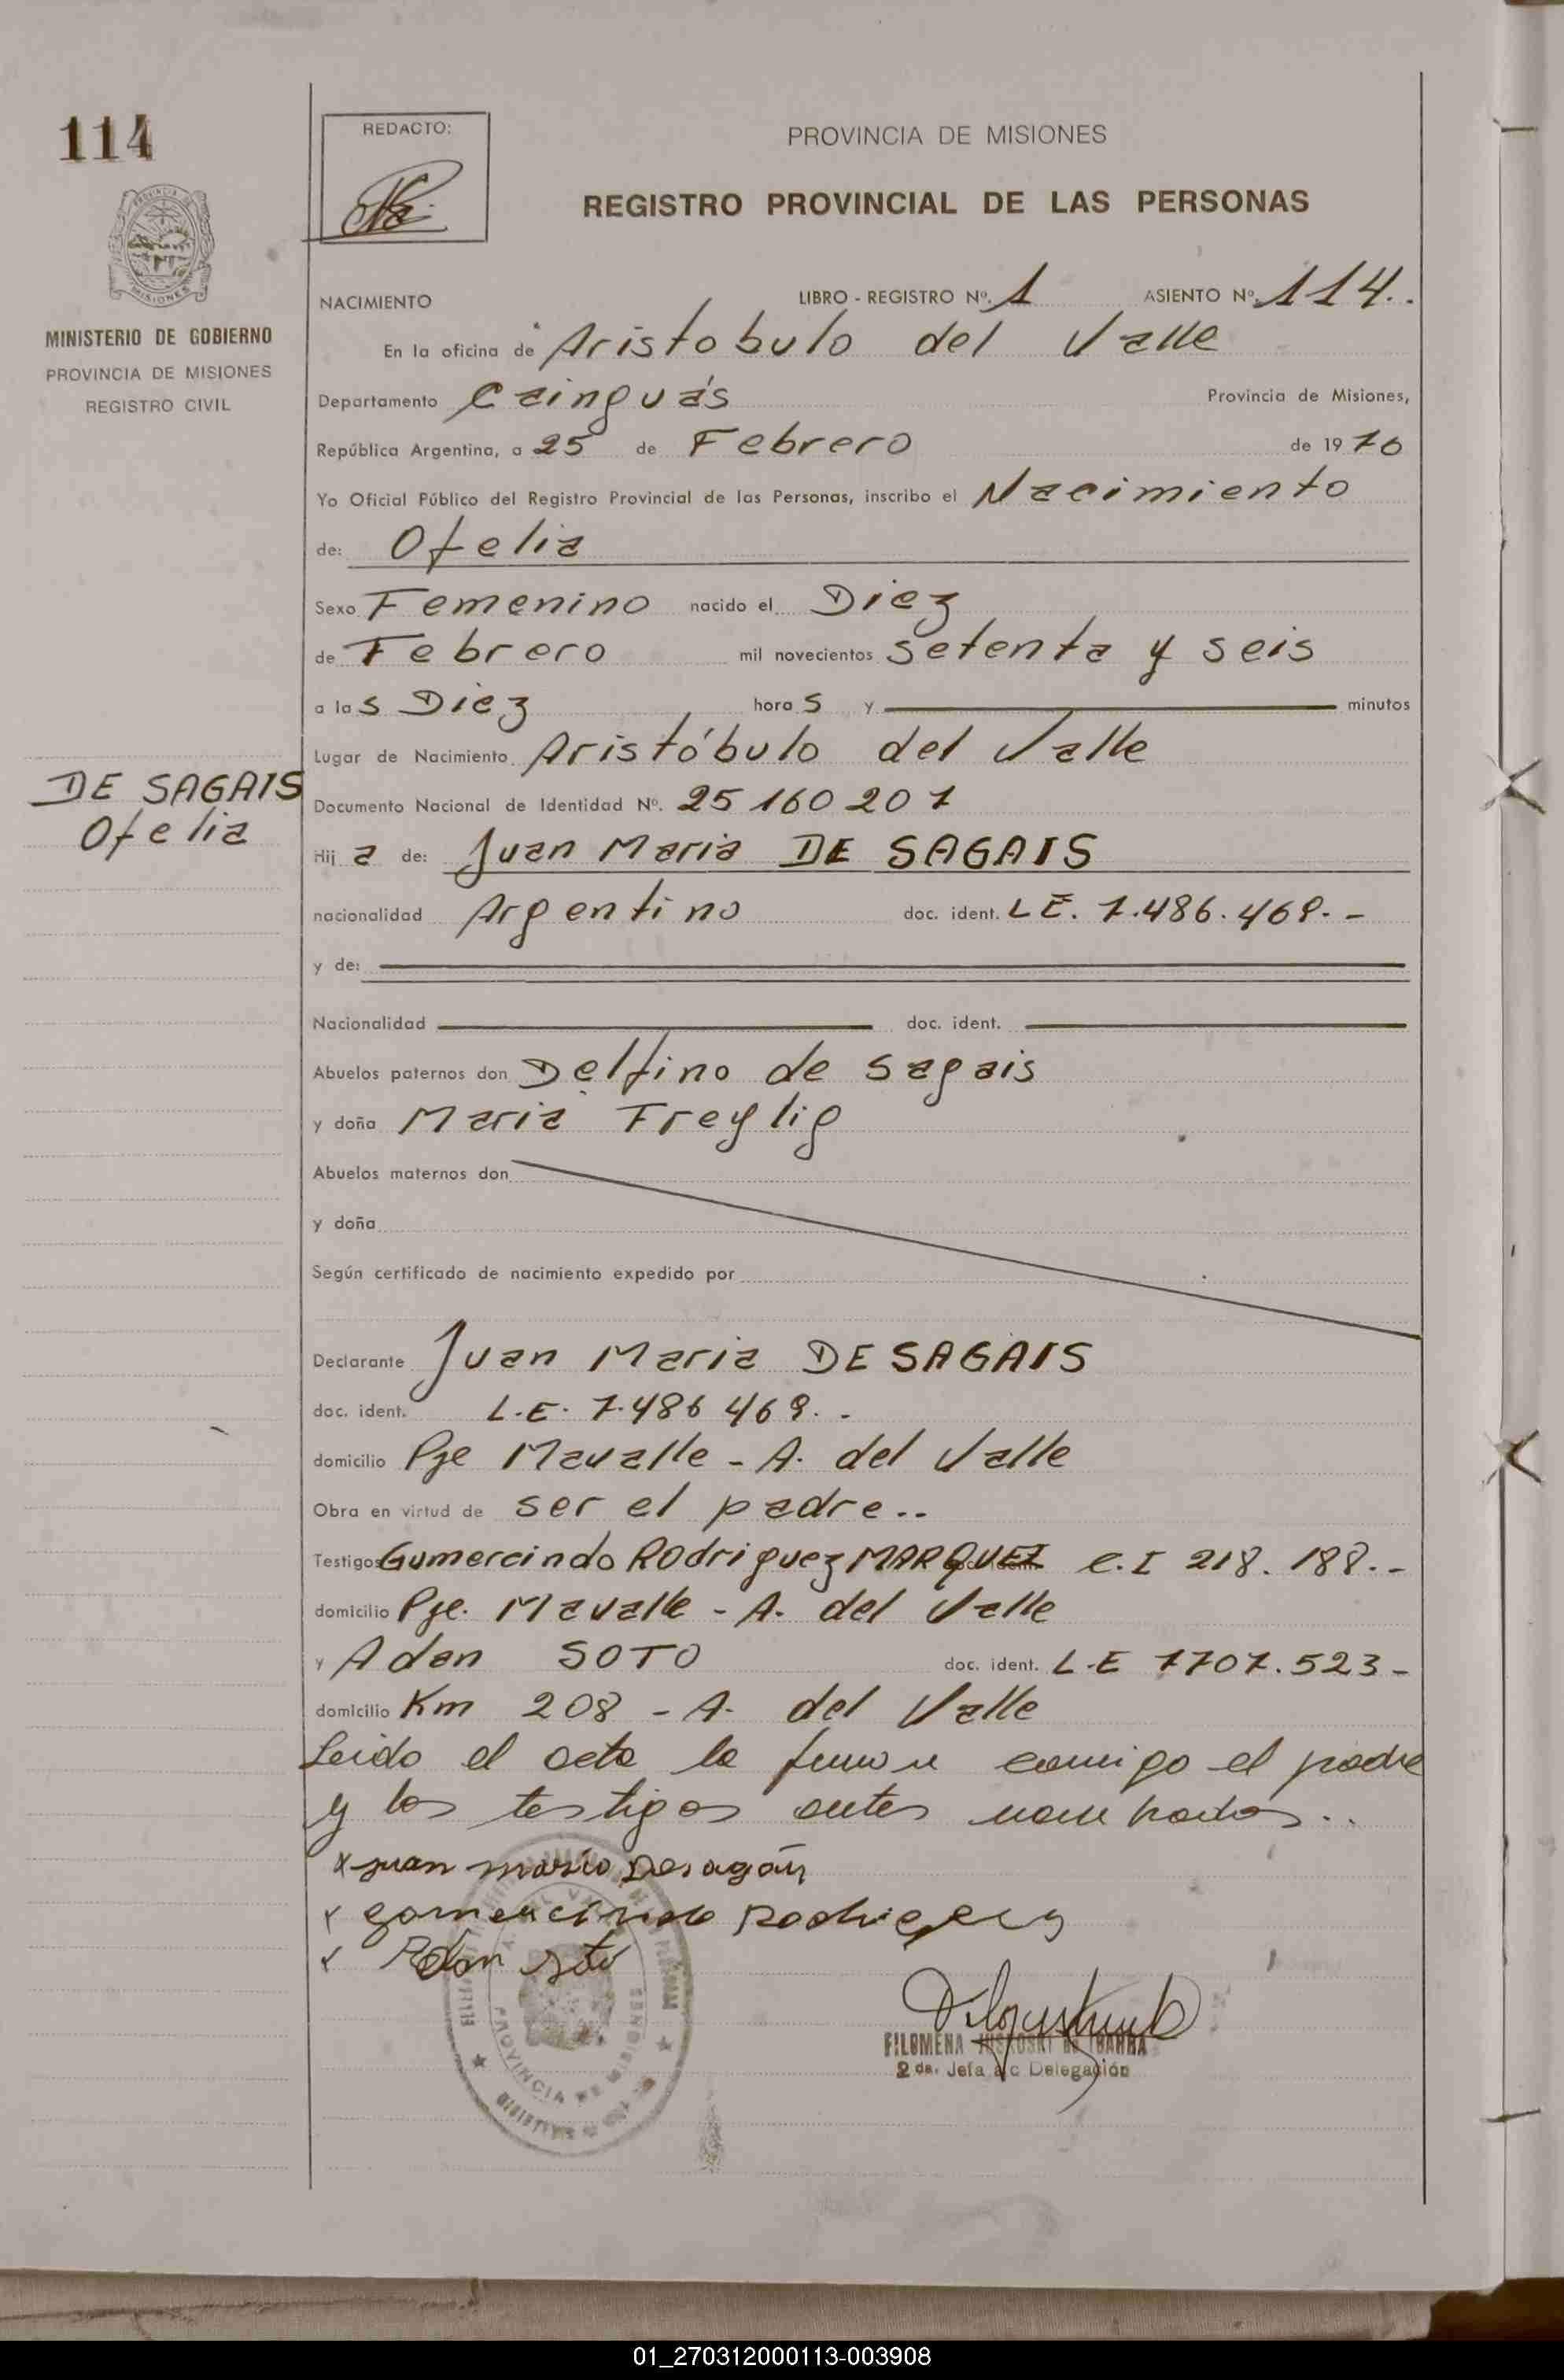 114
REDACTO:
PROVINCIA DE MISIONES
REGISTRO PROVINCIAL DE LAS PERSONAS
MISIONES
MINISTERIO DE GOBIERNO
PROVINCIA DE MISIONES
REGISTRO CIVIL
NACIMIENTO LIBRO - REGISTRO Nº. 1 ASIENTO Nº. 114..
En la oficina de Aristobulo del Valle
Departamento Cainguás Provincia de Misiones,
República Argentina, a 25 de Febrero de 1976
Yo Oficial Público del Registro Provincial de las Personas, inscribo el Nacimiento
de: Ofelia
Sexo Femenino nacido el Diez
de Febrero mil novecientos setenta y seis
a las Diez horas y minutos
Lugar de Nacimiento Aristóbulo del Valle
DE SAGAIS
Ofelia
Documento Nacional de Identidad Nº. 25 160 207
Hija de: Juan Maria DE SAGAIS
nacionalidad Argentino doc. ident. LE. 7.486.469.-
y de:
Nacionalidad doc. ident.
Abuelos paternos don Delfino de Sagais
y doña Maria Freylig
Abuelos maternos don
y doña
Según certificado de nacimiento expedido por
Declarante Juan Maria DE SAGAIS
doc. ident. L.E. 7.486 469..
domicilio Pje Mavalle - A. del Valle
Obra en virtud de ser el padre..
Testigos Gumercindo Rodriguez MARQUEZ C.I 218.188.-
domicilio Pje. Mavalle - A. del Valle
y Adan SOTO doc. ident. L.E 7707.523-
domicilio Km 208 - A. del Valle
Leido el acta la firman conmigo el padre
y los testigos antes nombrados..
x juan maria
x Rodriguez
x Adan soto
PROVINCIA DE MISIONES
FILOMENA JUSKOSKI DE IBARRA
2 da. Jefa a/c Delegación
01_270312000113-003908